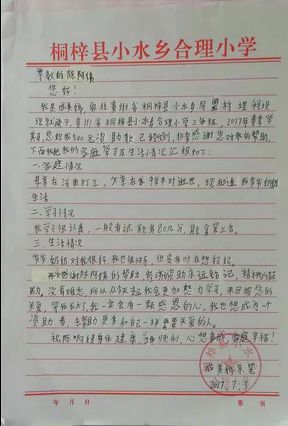 桐梓县小水乡合理小学
尊敬的陈阿姨
您好!
我是 家住贵州省桐梓县小水乡 村理程设
现就读于贵州省桐梓县小水乡合理小学三年级,2017年春季学
期,您的我500元资助款已经收到,非常感谢您对我的帮助,
下面我把我的家庭学习及生活情况汇报如下:
一、家庭情况
在河南打工, 在 年对逝世,现在 我爷爷奶奶
生活
二、学习情况
我学习很认真,一般考试能考80几分,能拿第三名。
三、生活情况
爷爷奶奶对我很好,我也很好,但是有时在想妈妈。
感谢陈阿姨的帮助,我 助永远铭记,精神的鼓
励,没有难忘,所以从今起我会更加努力学习,来回报您的
关爱,等我长大了,我一定会有一颗感恩的心,我也想成为一个
资助者,去帮助更多和自己一样需要关爱的人。
祝陈阿姨身体健康, 顺利,心想事成,家庭幸福!
2017.7.3
年 月 日
第 页